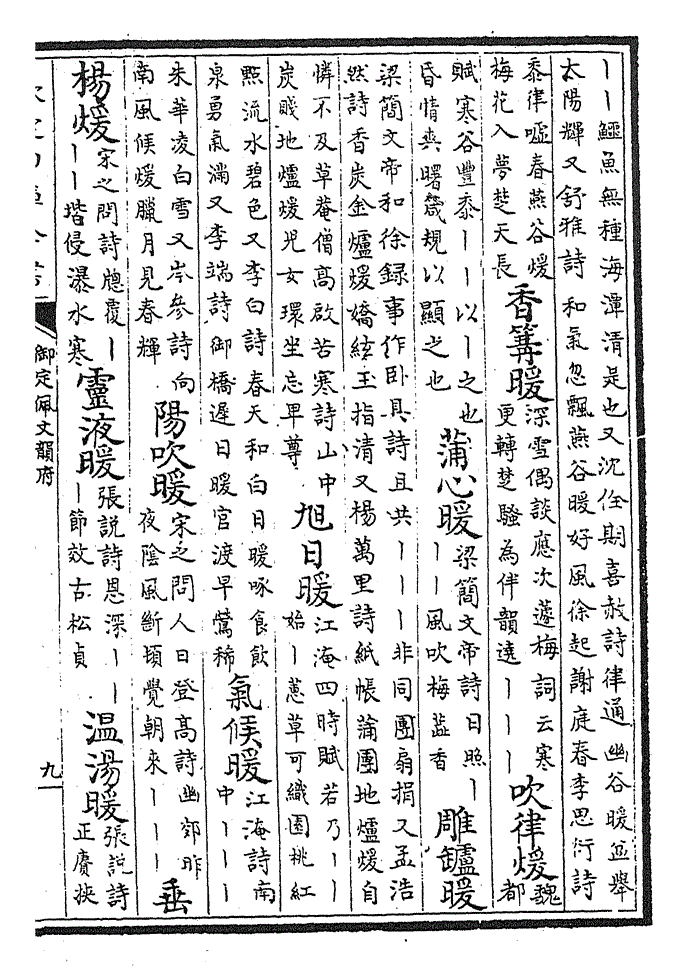 丨丨鱷魚無種海潭清是也又沈佺期喜赦詩律通幽谷暖盆舉
太陽輝又舒雅詩和氣忽飄燕谷暖好風徐起謝庭春李思衍詩
黍律噓春燕谷煖
梅花入夢楚天長
香篝暖
深雪偶談應次蘧梅詞云寒
更轉楚騷為伴韻遶丨丨丨
吹律煖
魏
都
賦寒谷豐黍丨丨以丨之也
昏情爽曙箴規以顯之也
蒲心暖
梁簡文帝詩日照丨
丨丨風吹梅蕋香
雕鑪暖
梁簡文帝和徐録事作卧具詩且共丨丨丨非同團扇捐又孟浩
然詩香炭金爐煖嬌絃玉指清又楊萬里詩紙帳蒲團地爐煖自
憐不及草菴僧高啟苦寒詩山中
炭賤地爐煖兒女環坐忘早尊
旭日暖
江淹四時賦若乃丨丨
始丨蕙草可織園桃紅
㸃流水碧色又李白詩春天和白日暖啄食飲
泉勇氣滿又李端詩御橋遲日暖官渡早鶯稀
氣候暖
江淹詩南
中丨丨丨
朱華凌白雪又岑參詩向
南風候煖臘月見春輝
陽吹暖
宋之問人日登高詩幽郊昨
夜陰風斷頃覺朝來丨丨丨
垂
楊煖
宋之問詩牕覆丨
丨丨堦侵瀑水寒
靈液暖
張説詩恩深丨丨
丨節效古松貞
温湯暖
張説詩
正賡挾
御定佩文韻府
九